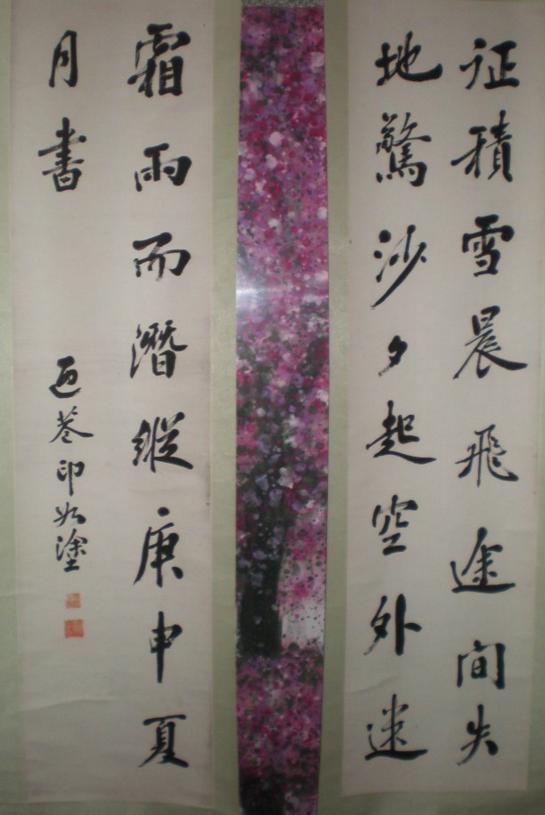 征積雪晨飛途間失
地驚沙夕起空外迷
霜雨而潛縱庚申夏
月書
菴印如塗